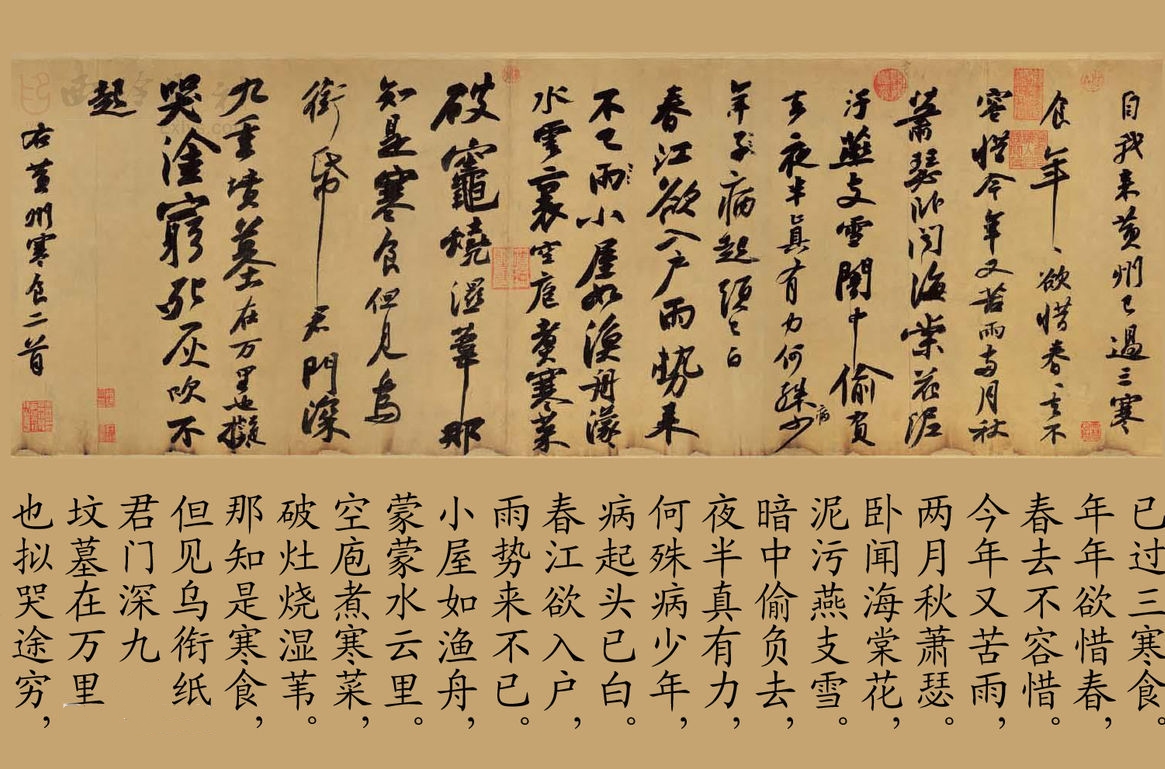 自我来黄州已過三寒
食年〻欲惜春〻去不
容惜今年又苦雨兩月秋
蕭瑟卧聞海棠花泥
汙燕支雪闇中偷負
去夜半真有力何殊病少
年子病起頭已白
春江欲入户雨勢来
不已雨小屋如漁舟濛〻
水雲裏空庖煮寒菜
破竈燒濕葦那
知是寒食但見烏
銜帋君門深
九重墳墓在万里也擬
哭塗窮死灰吹不
起
右黄州寒食二首
已过三寒食。
年年欲惜春，
春去不容惜。
今年又苦雨，
两月秋萧瑟。
卧闻海棠花，
泥污燕支雪。
暗中偷负去，
夜半真有力，
何殊病少年，
病起头已白。
春江欲入户，
雨势来不已。
小屋如渔舟，
蒙蒙水云里。
空庖煮寒菜，
破灶烧湿苇。
那知是寒食，
但见乌衔纸
君门深九
坟墓在万里
也拟哭途穷，